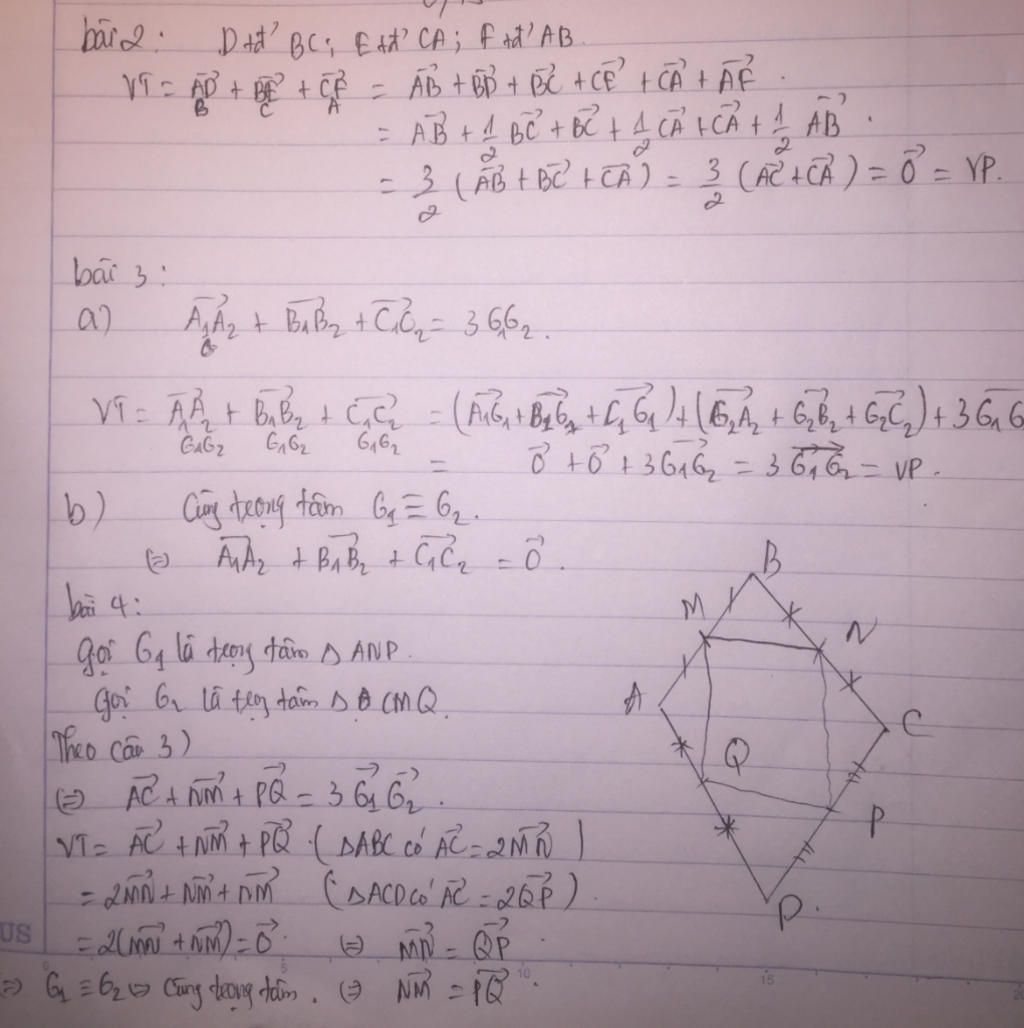 bài 2: D tđ' BC; E tđ' CA; F tđ' AB
VT = AD→ + BE→ + CF→ = AB→ + BD→ + BC→ + CE→ + CA→ + AF→.
B C A
= AB→ + 1/2 BC→ + BC→ + 1/2 CA→ + CA→ + 1/2 AB→.
= 3/2 (AB→ + BC→ + CA→) = 3/2 (AC→ + CA→) = 0→ = VP.
bài 3:
a) A₁A₂→ + B₁B₂→ + C₁C₂→ = 3G₁G₂→.
VT = A₁A₂→ + B₁B₂→ + C₁C₂→ = (A₁G₁→ + B₁G₁→ + C₁G₁→) + (G₂A₂→ + G₂B₂→ + G₂C₂→) + 3G₁G
G₁G₂ G₁G₂ G₁G₂
= 0→ + 0→ + 3G₁G₂→ = 3G₁G₂→ = VP.
b) Cùng trọng tâm G₁ ≡ G₂.
(=) A₁A₂→ + B₁B₂→ + C₁C₂→ = 0→.
bài 4:
Gọi G₁ là trọng tâm Δ ANP.
Gọi G₂ là trọg tâm Δ CMQ.
Theo câu 3)
(=) AC→ + NM→ + PQ→ = 3G₁G₂→.
VT = AC→ + NM→ + PQ→. (ΔABC có AC→ = 2MN→)
= 2MN→ + NM→ + NM→ (ΔACD có AC→ = 2QP→).
= 2(MN→ + NM→) = 0→. (=) MN→ = QP→.
=) G₁ ≡ G₂ => Cùng trọng tâm. (=) NM→ = PQ→.
B
M
N
A
C
Q
P
D.
US
5
10
15
20